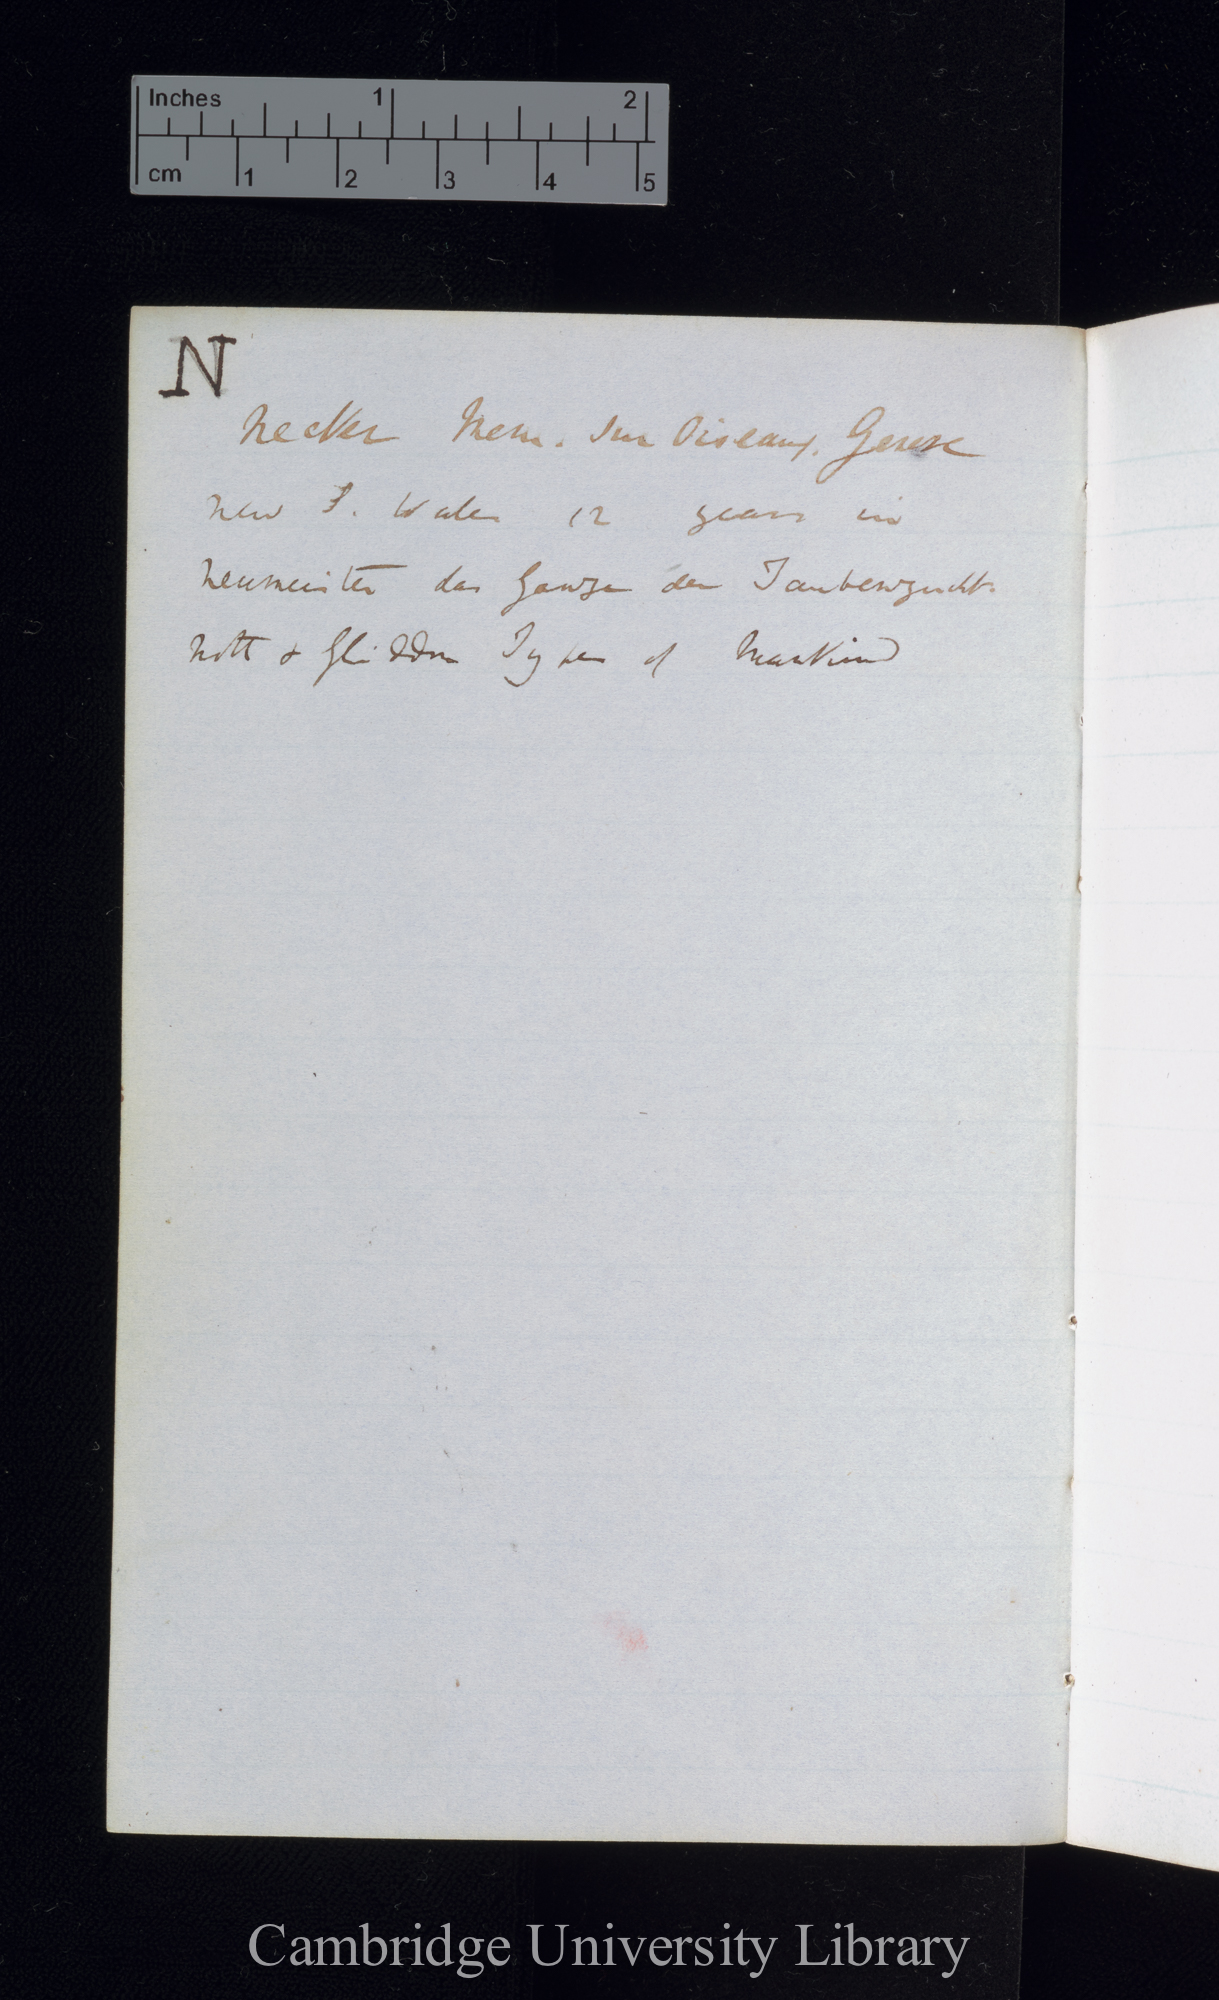 Inches 1 2
cm 1 2 3 4 5
N
Necker Mem. sur Oiseaux. Geneve
New S. Wales 12 years in
Neumeister das Ganze der Taubenzucht.
Nott & Gliddon Types of Mankind
Cambridge University Library